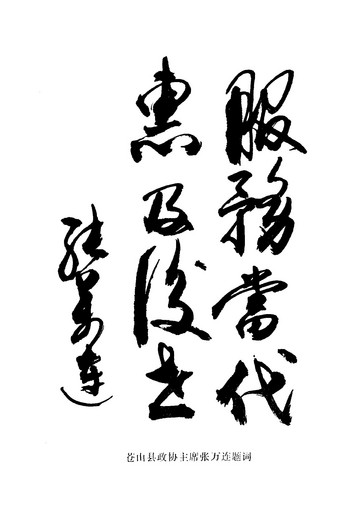 服務當代
惠及後世
张万连
苍山县政协主席张万连题词